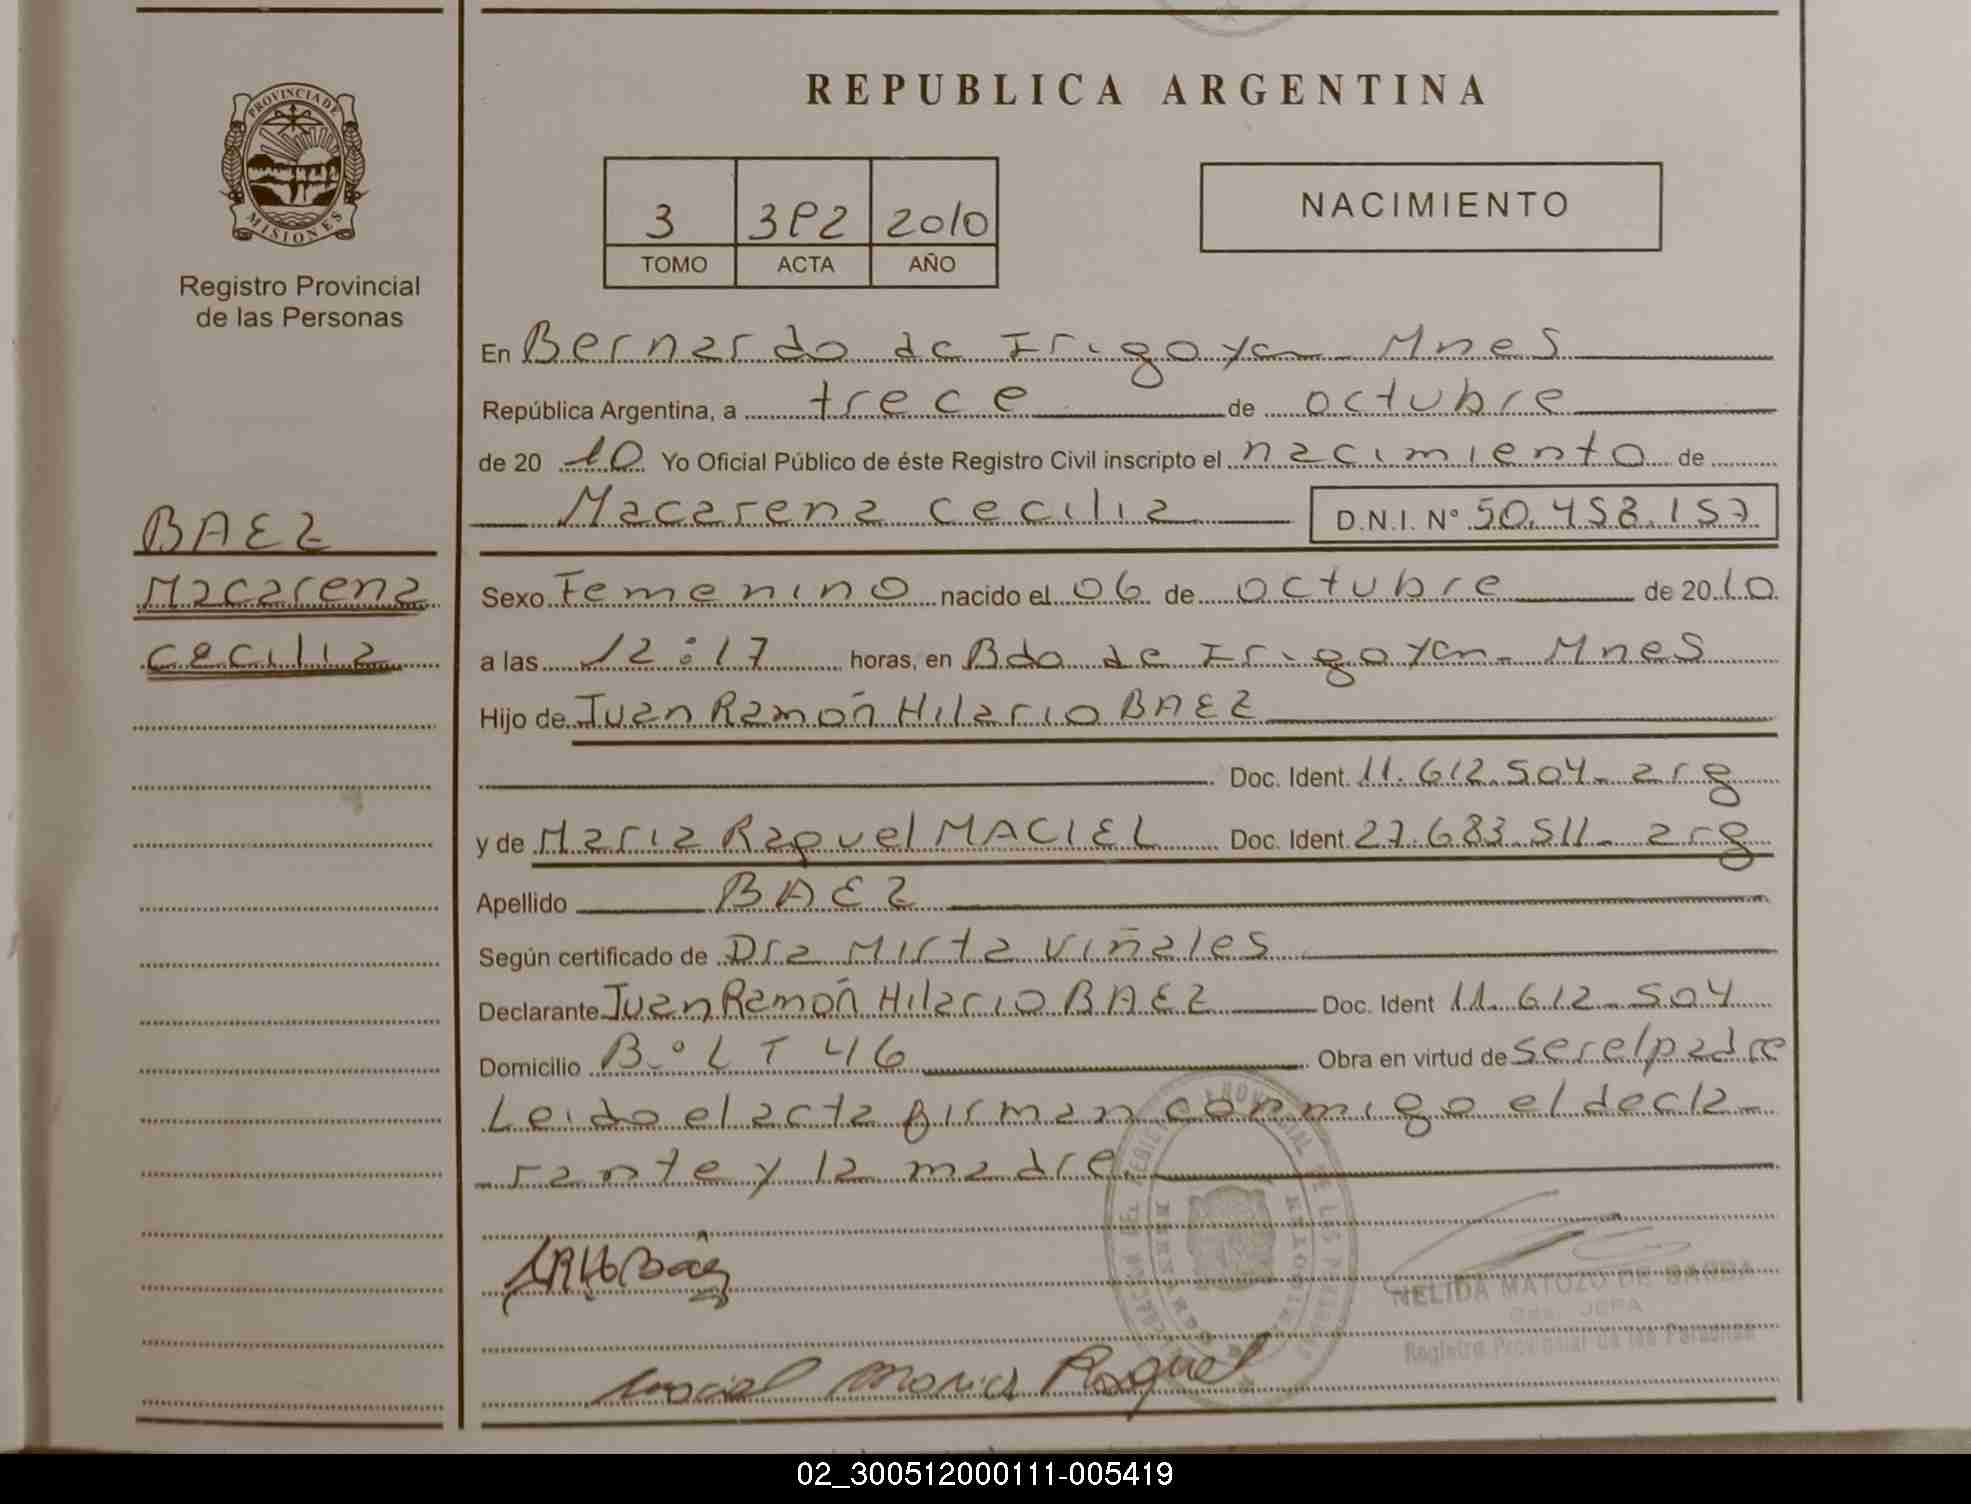 REPUBLICA ARGENTINA
PROVINCIA DE
MISIONES
Registro Provincial
de las Personas
3 3P2 2010
TOMO ACTA AÑO
NACIMIENTO
En Bernardo de Irigoyen Mnes
República Argentina, a trece de octubre
de 20 10 Yo Oficial Público de éste Registro Civil inscripto el nacimiento de
Macarena cecilia D.N.I. N° 50.458.157
BAEZ
Macarena
cecilia
Sexo Femenino nacido el 06 de octubre de 2010
a las 12:17 horas, en Bdo de Irigoyen - Mnes
Hijo de Juan Ramón Hilario BAEZ
Doc. Ident. 11.612.504 - arg
y de Maria Raquel MACIEL Doc. Ident. 27.683.511 - arg
Apellido BAEZ
Según certificado de Dra Mirta Viñales
Declarante Juan Ramón Hilario BAEZ Doc. Ident 11.612.504
Domicilio B° LT 46 Obra en virtud de ser el padre
Leido el acta firman conmigo el decla-
rante y la madre.
JRHBáez
NELIDA MATOZO DE
JEFA
Registro Provincial de las Personas
Maciel Maria Raquel
02_300512000111-005419